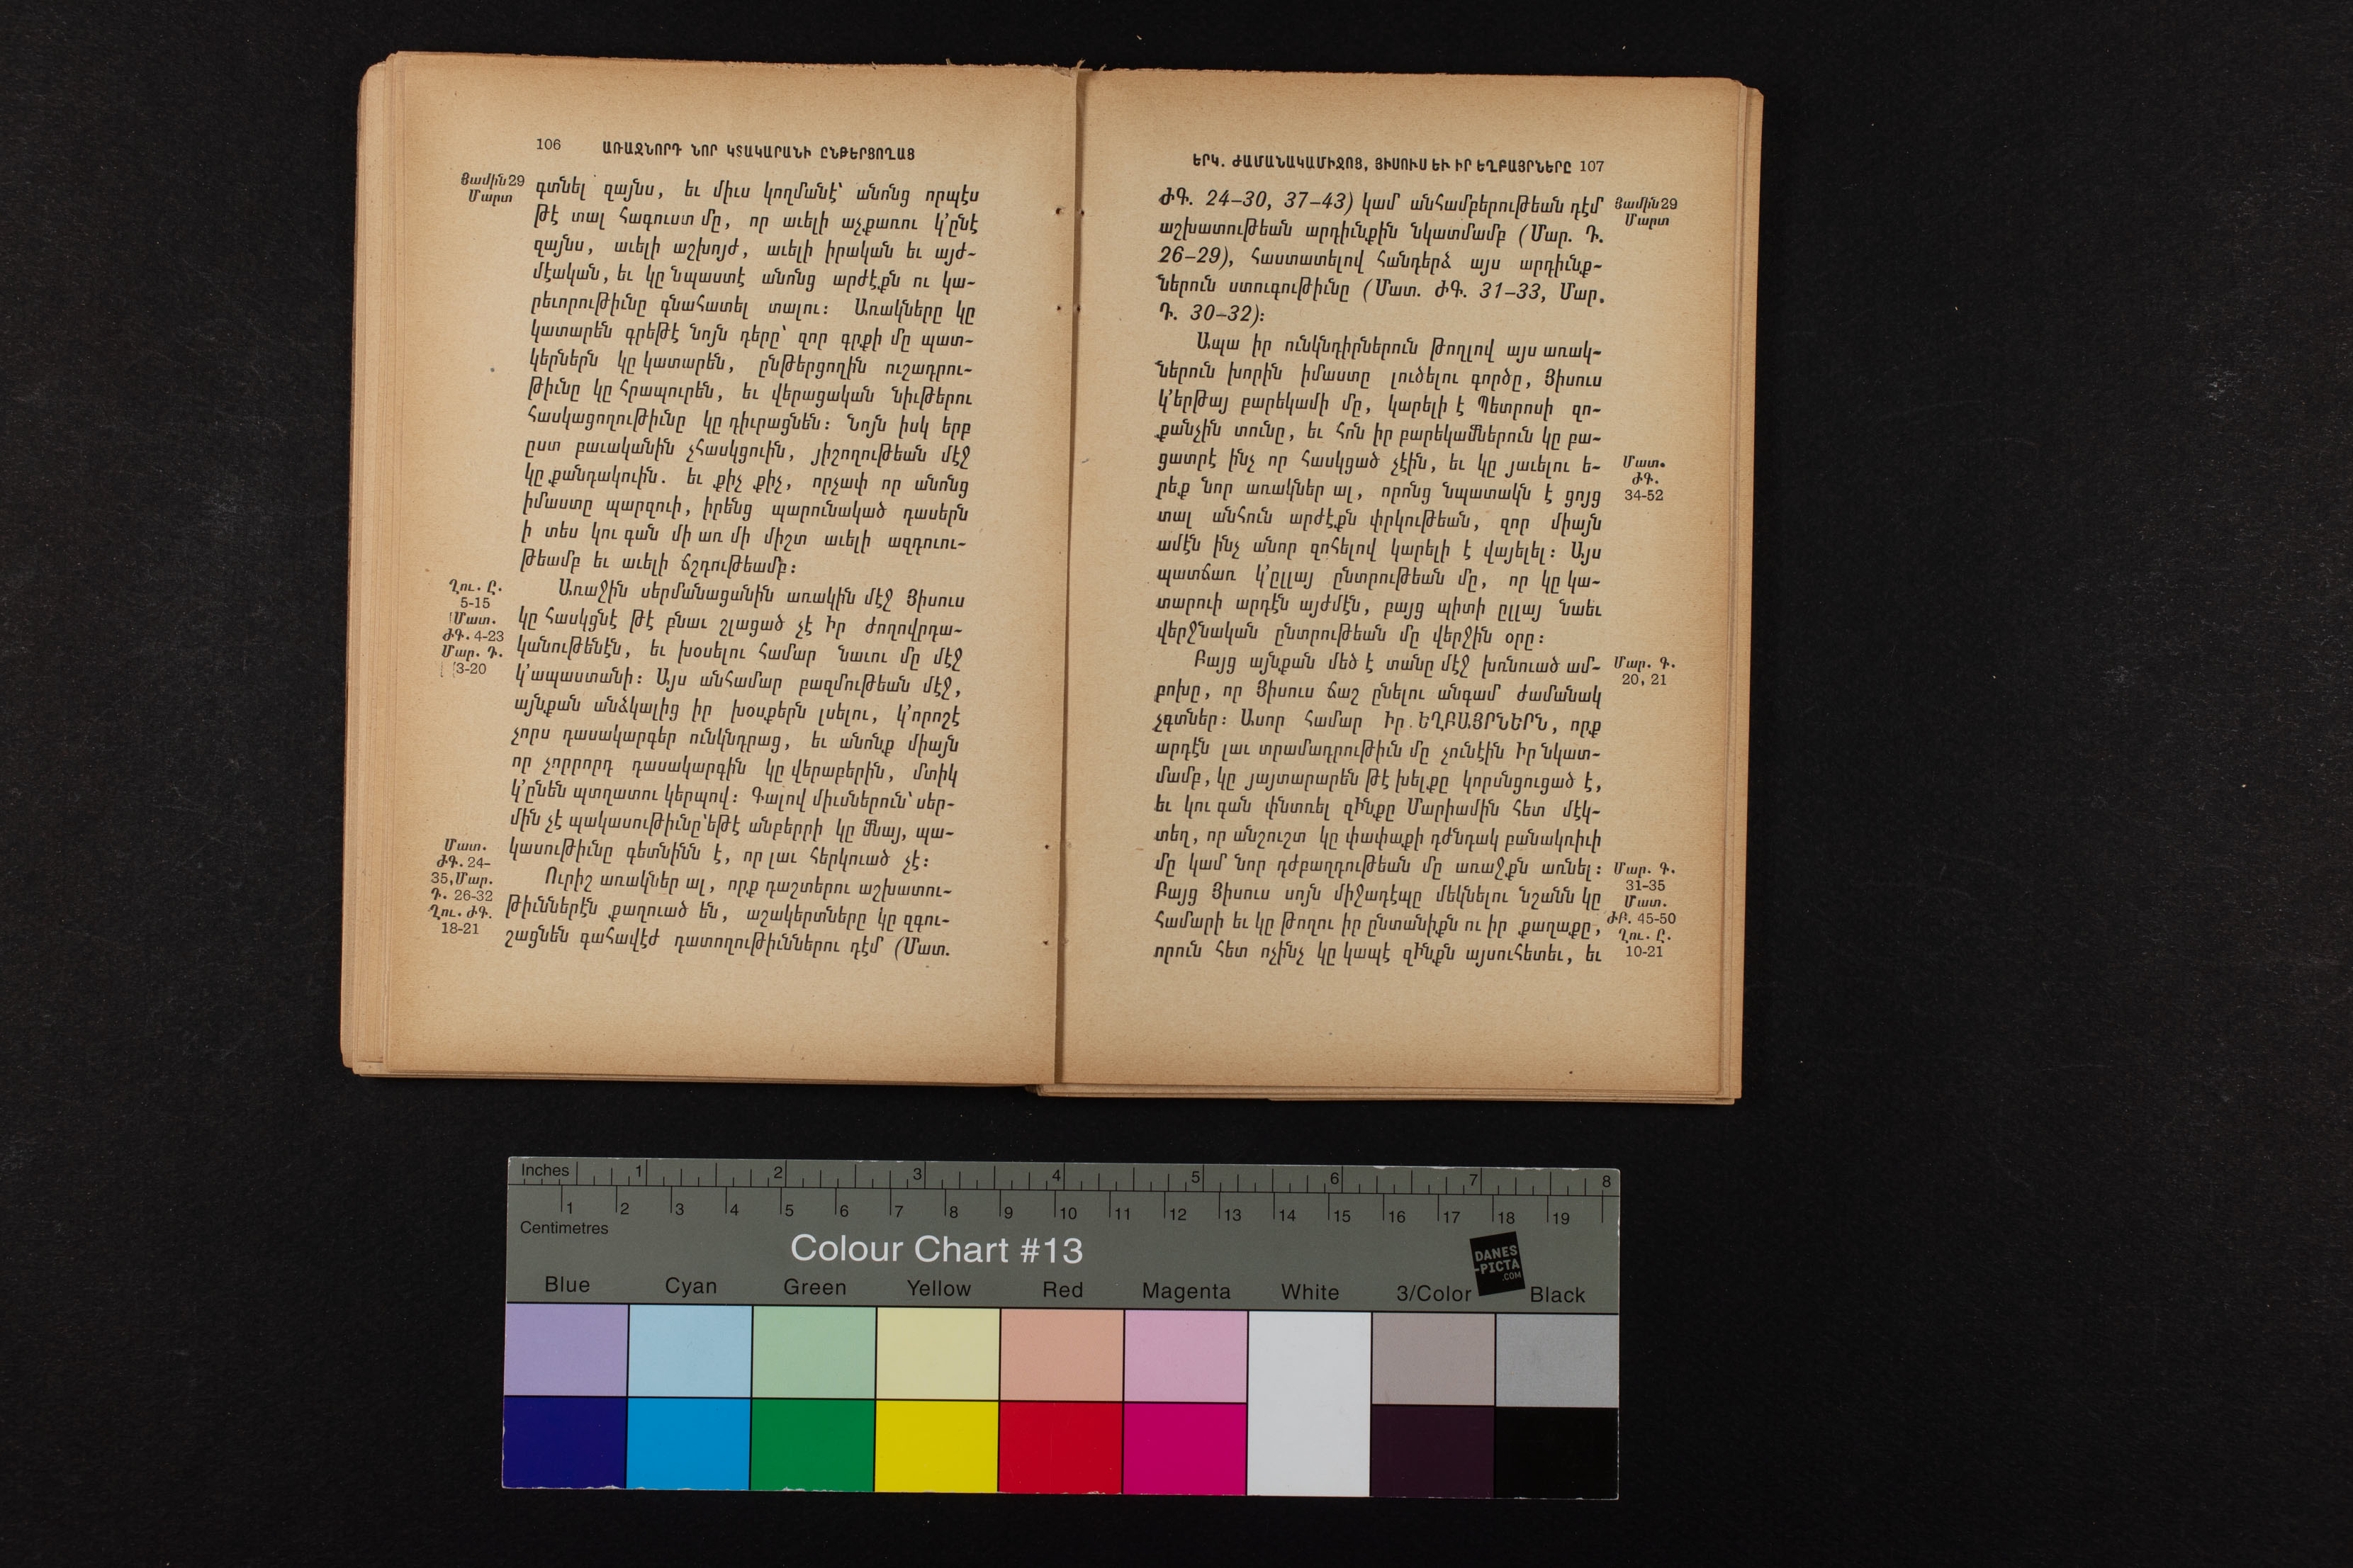 106 ԱՌԱՋՆՈՐԴ ՆՈՐ ԿՏԱԿԱՐԱՆԻ ԸՆԹԵՐՑՈՂԱՑ
Յամին 29
Մարտ
գտնել զայնս, եւ միւս կողմանէ՝ անոնց որպէս
թէ տալ հագուստ մը, որ աւելի աչքառու կ՚ընէ
զայնս, աւելի աշխոյժ, աւելի իրական եւ այժ-
մէական, եւ կը նպաստէ անոնց արժէքն ու կա-
րեւորութիւնը գնահատել տալու։ Առակները կը
կատարեն գրեթէ նոյն դերը՝ զոր գրքի մը պատ-
կերներն կը կատարեն, ընթերցողին ուշադրու-
թիւնը կը հրապուրեն, եւ վերացական նիւթերու
հասկացողութիւնը կը դիւրացնեն։ Նոյն իսկ երբ
ըստ բաւականին չհասկցուին, յիշողութեան մէջ
կը քանդակուին. եւ քիչ քիչ, որչափ որ անոնց
իմաստը պարզուի, իրենց պարունակած դասերն
ի տես կու գան մի առ մի միշտ աւելի ազդուու-
թեամբ եւ աւելի ճշդութեամբ։
Ղու. Ը.
5-15
Մատ.
ԺԳ. 4-23
Մար. Դ.
3-20
Առաջին սերմանացանին առակին մէջ Յիսուս
կը հասկցնէ թէ բնաւ շլացած չէ Իր ժողովրդա-
կանութենէն, եւ խօսելու համար նաւու մը մէջ
կ՚ապաստանի։ Այս անհամար բազմութեան մէջ,
այնքան անձկալից իր խօսքերն լսելու, կ՚որոշէ
չորս դասակարգեր ունկնդրաց, եւ անոնք միայն
որ չորրորդ դասակարգին կը վերաբերին, մտիկ
կ՚ընեն պտղատու կերպով։ Գալով միւսներուն՝ սեր-
մին չէ պակասութիւնը՝ եթէ անբերրի կը մնայ, պա-
կասութիւնը գետնինն է, որ լաւ հերկուած չէ։
Մատ.
ԺԳ. 24-
35, Մար.
Դ. 26-32
Ղու. ԺԳ.
18-21
Ուրիշ առակներ ալ, որք դաշտերու աշխատու-
թիւններէն քաղուած են, աշակերտները կը զգու-
շացնեն գահավէժ դատողութիւններու դէմ (Մատ.
ԵՐԿ. ԺԱՄԱՆԱԿԱՄԻՋՈՑ, ՅԻՍՈՒՍ ԵՒ ԻՐ ԵՂԲԱՅՐՆԵՐԸ 107
Յամին 29
Մարտ
ԺԳ. 24–30, 37–43) կամ անհամբերութեան դէմ
աշխատութեան արդիւնքին նկատմամբ (Մար. Դ.
26–29), հաստատելով հանդերձ այս արդիւնք-
ներուն ստուգութիւնը (Մատ. ԺԳ. 31–33, Մար.
Դ. 30–32)։
Ապա իր ունկնդիրներուն թողլով այս առակ-
ներուն խորին իմաստը լուծելու գործը, Յիսուս
կ՚երթայ բարեկամի մը, կարելի է Պետրոսի զո-
քանչին տունը, եւ հոն իր բարեկամներուն կը բա-
ցատրէ ինչ որ հասկցած չէին, եւ կը յաւելու ե-
րեք նոր առակներ ալ, որոնց նպատակն է ցոյց
տալ անհուն արժէքն փրկութեան, զոր միայն
ամէն ինչ անոր զոհելով կարելի է վայելել։ Այս
պատճառ կ՚ըլլայ ընտրութեան մը, որ կը կա-
տարուի արդէն այժմէն, բայց պիտի ըլլայ նաեւ
վերջնական ընտրութեան մը վերջին օրը։
Մատ.
ԺԳ.
34-52
Բայց այնքան մեծ է տանը մէջ խռնուած ամ-
բոխը, որ Յիսուս ճաշ ընելու անգամ ժամանակ
չգտներ։ Ասոր համար Իր ԵՂԲԱՅՐՆԵՐՆ, որք
արդէն լաւ տրամադրութիւն մը չունէին Իր նկատ-
մամբ, կը յայտարարեն թէ խելքը կորսնցուցած է,
եւ կու գան փնտռել զԻնքը Մարիամին հետ մէկ-
տեղ, որ անշուշտ կը փափաքի դժնդակ բանակռիւի
մը կամ նոր դժբաղդութեան մը առաջքն առնել։
Բայց Յիսուս սոյն միջադէպը մեկնելու նշանն կը
համարի եւ կը թողու իր ընտանիքն ու իր քաղաքը,
որուն հետ ոչինչ կը կապէ զԻնքն այսուհետեւ, եւ
Մար. Գ.
20, 21
Մար. Գ.
31-35
Մատ.
ԺԲ. 45-50
Ղու. Ը.
10-21
Inches 1 2 3 4 5 6 7 8
1 2 3 4 5 6 7 8 9 10 11 12 13 14 15 16 17 18 19
Centimetres
Colour Chart #13
DANES
-PICTA
.COM
Blue Cyan Green Yellow Red Magenta White 3/Color Black